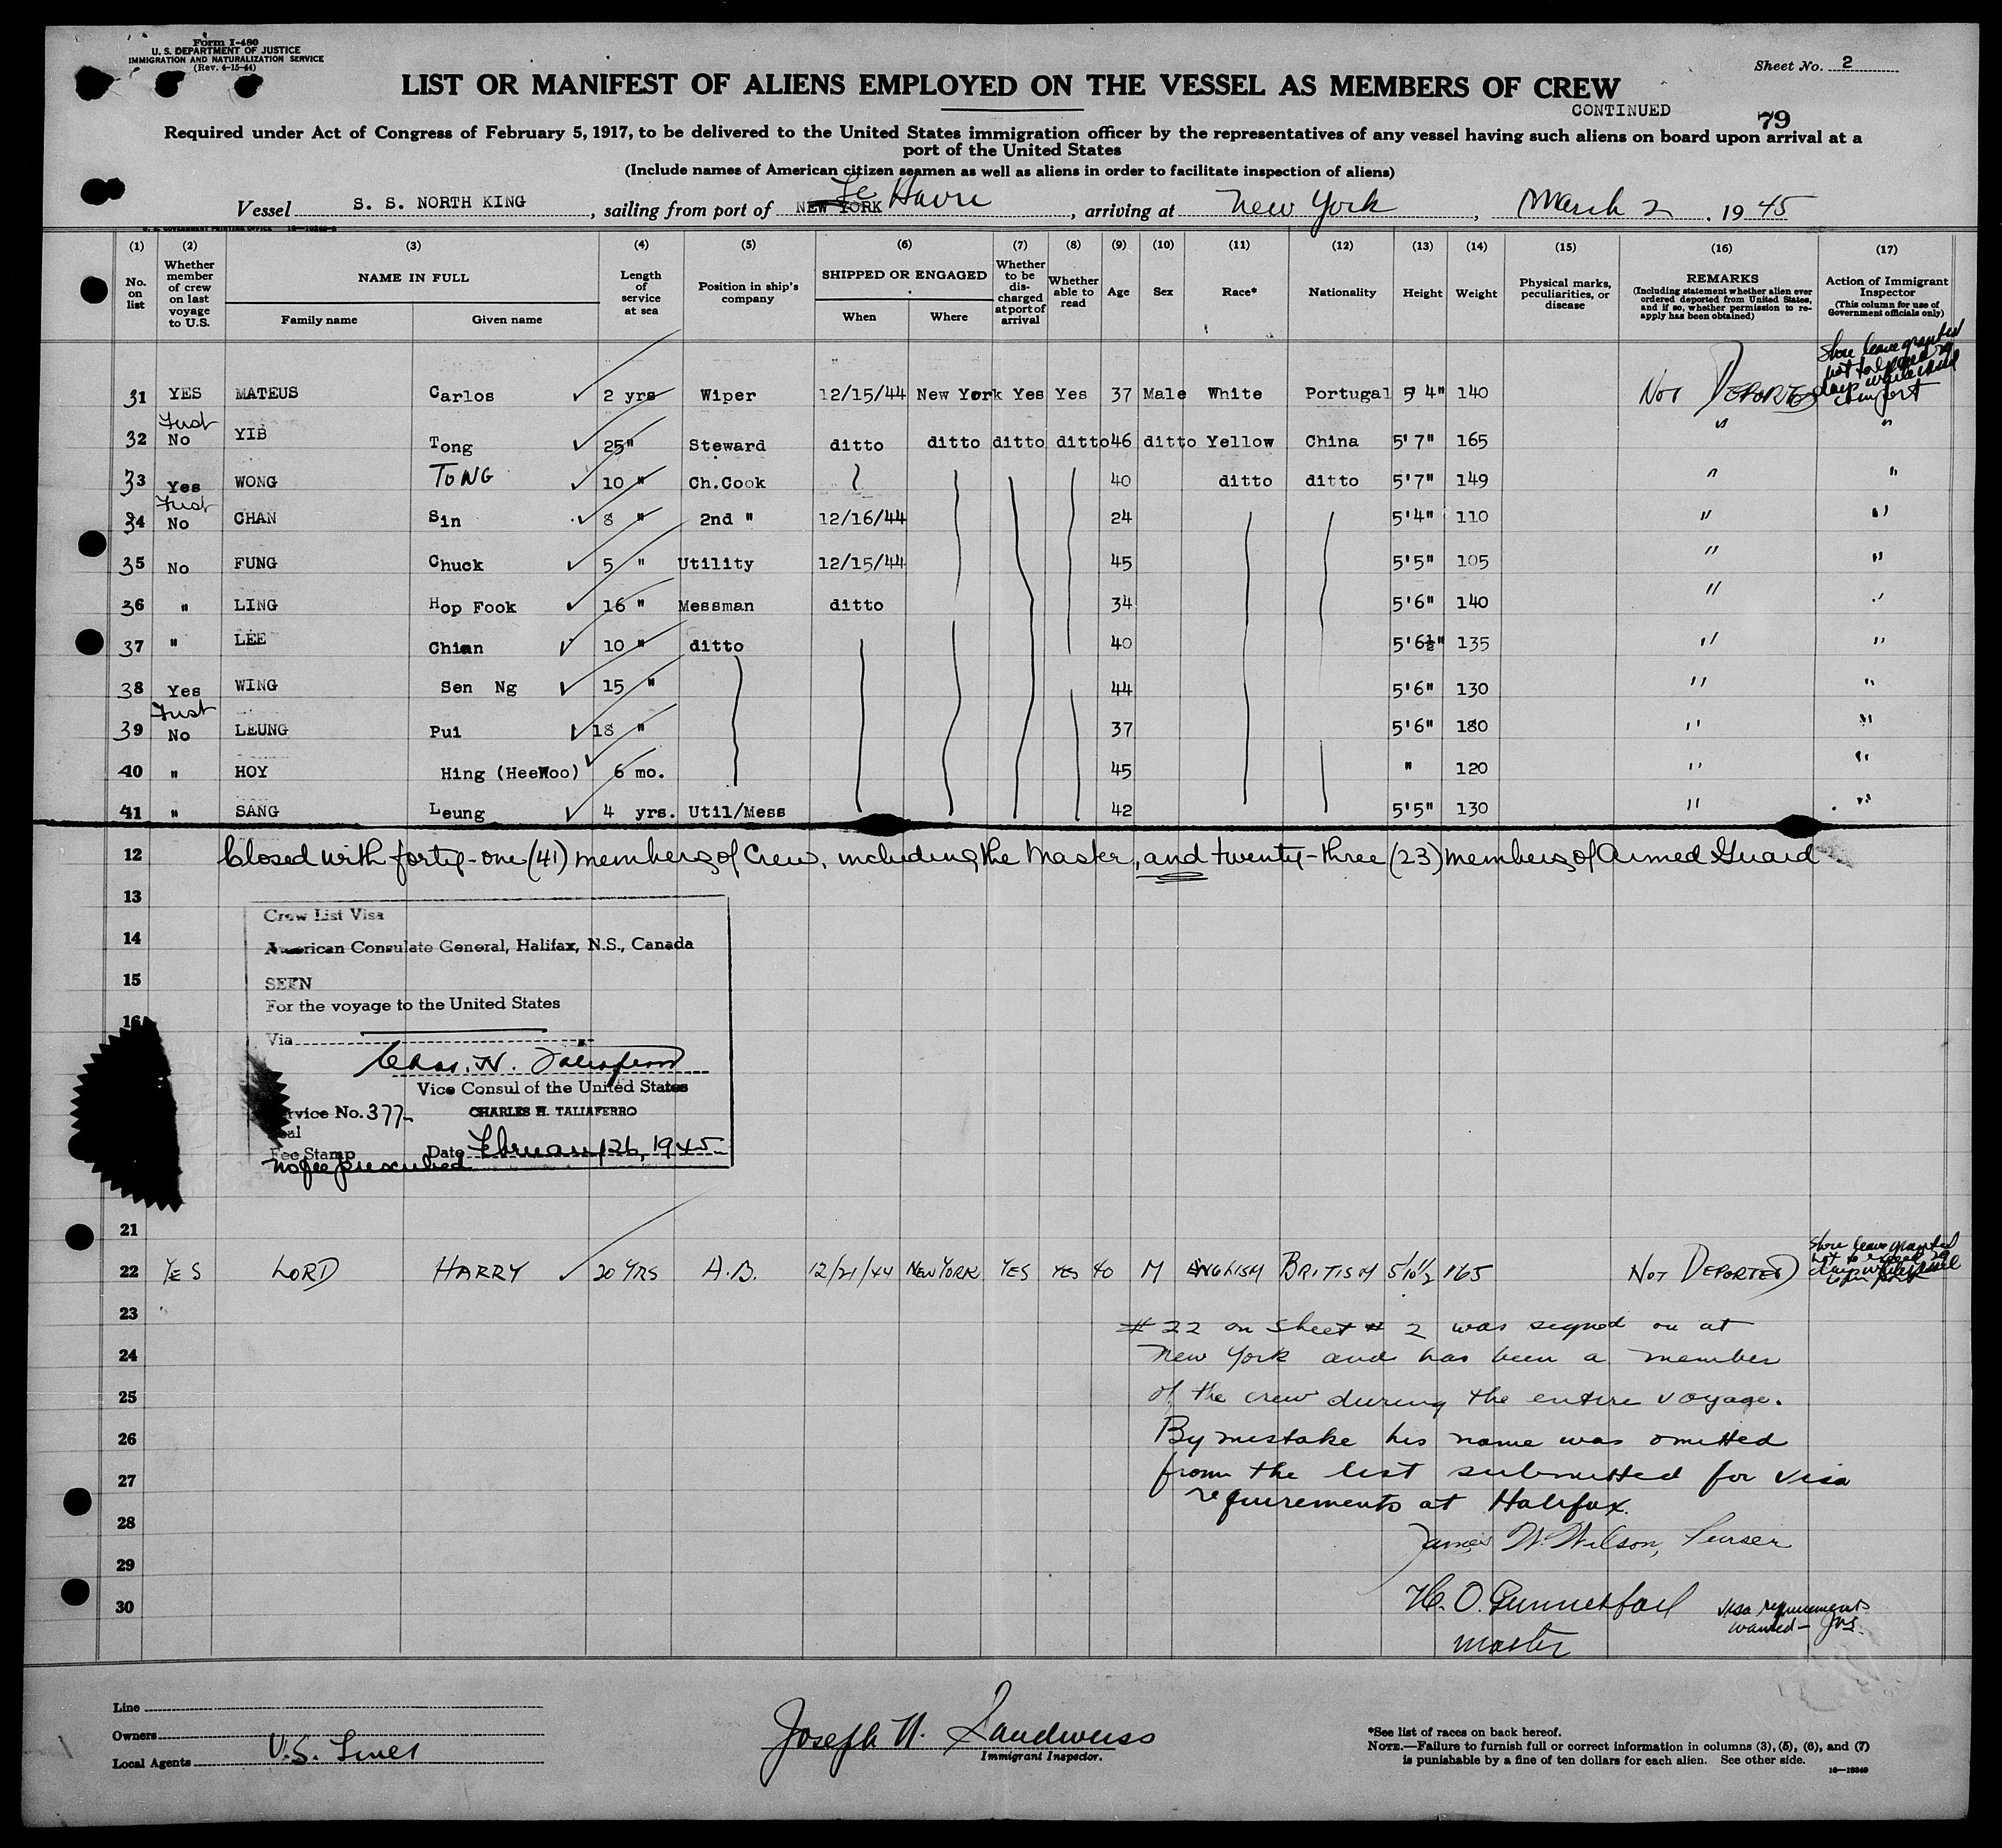 Form I-480
U. S. DEPARTMENT OF JUSTICE
IMMIGRATION AND NATURALIZATION SERVICE
(Rev. 4-15-44)
Sheet No. 2
LIST OR MANIFEST OF ALIENS EMPLOYED ON THE VESSEL AS MEMBERS OF CREW
CONTINUED
79
Required under Act of Congress of February 5, 1917, to be delivered to the United States immigration officer by the representatives of any vessel having such aliens on board upon arrival at a
port of the United States
(Include names of American citizen seamen as well as aliens in order to facilitate inspection of aliens)
Vessel S. S. NORTH KING, sailing from port of NEW YORK Le Havre, arriving at New York, March 2, 1945
(1) (2) (3) (4) (5) (6) (7) (8) (9) (10) (11) (12) (13) (14) (15) (16) (17)
No. on list
Whether member of crew on last voyage to U.S.
NAME IN FULL
Family name Given name
Length of service at sea
Position in ship's company
SHIPPED OR ENGAGED
When Where
Whether to be discharged at port of arrival
Whether able to read
Age
Sex
Race*
Nationality
Height
Weight
Physical marks, peculiarities, or disease
REMARKS
(Including statement whether alien ever ordered deported from United States, and if so, whether permission to reapply has been obtained)
Action of Immigrant Inspector
(This column for use of Government officials only)
Shore leave granted
not to exceed 29
days while vessel
in port
31 YES MATEUS Carlos ✓ 2 yrs Wiper 12/15/44 New York Yes Yes 37 Male White Portugal 5' 4" 140 NOT DEPORTED
First
32 No YIB Tong ✓ 25" Steward ditto ditto ditto ditto 46 ditto Yellow China 5' 7" 165 " "
33 Yes WONG TONG ✓ 10 " Ch.Cook 40 ditto ditto 5'7" 149 " "
First
34 No CHAN Sin ✓ 8 " 2nd " 12/16/44 24 5'4" 110 " "
35 No FUNG Chuck ✓ 5 " Utility 12/15/44 45 5'5" 105 " "
36 " LING Hop Fook ✓ 16 " Messman ditto 34 5'6" 140 " "
37 " LEE Chian ✓ 10 " ditto 40 5'6½" 135 " "
38 Yes WING Sen Ng ✓ 15 " 44 5'6" 130 " "
First
39 No LEUNG Pui ✓ 18 " 37 5'6" 180 " "
40 " HOY Hing (HeeWoo) ✓ 6 mo. 45 " 120 " "
41 " SANG Leung ✓ 4 yrs. Util/Mess 42 5'5" 130 " "
12 Closed with forty-one (41) members of Crew, including the Master, and twenty-three (23) members of Armed Guard
13
14
15
16
Crew List Visa
American Consulate General, Halifax, N.S., Canada
SEEN
For the voyage to the United States
Via
Chas. H. Taliaferro
Vice Consul of the United States
Service No. 377
CHARLES H. TALIAFERRO
Seal
Fee Stamp Date February 26, 1945
No fee prescribed
21
22 YES LORD HARRY ✓ 20 YRS A.B. 12/21/44 NEW YORK YES YES 40 M ENGLISH BRITISH 5/10½ 165 NOT DEPORTED
Shore leave granted
not to exceed 29
days while vessel
in port
23 # 22 on sheet # 2 was signed on at
24 New York and has been a member
25 of the crew during the entire voyage.
26 By mistake his name was omitted
27 from the list submitted for visa
requirements at Halifax.
28 James W. Wilson, Purser
29
30 Master
visa requirements
waived
Line
Owners
Local Agents U.S. Lines
Joseph H. Sandweiss
Immigrant Inspector.
*See list of races on back hereof.
NOTE.—Failure to furnish full or correct information in columns (3), (5), (6), and (7)
is punishable by a fine of ten dollars for each alien. See other side.
16-19240